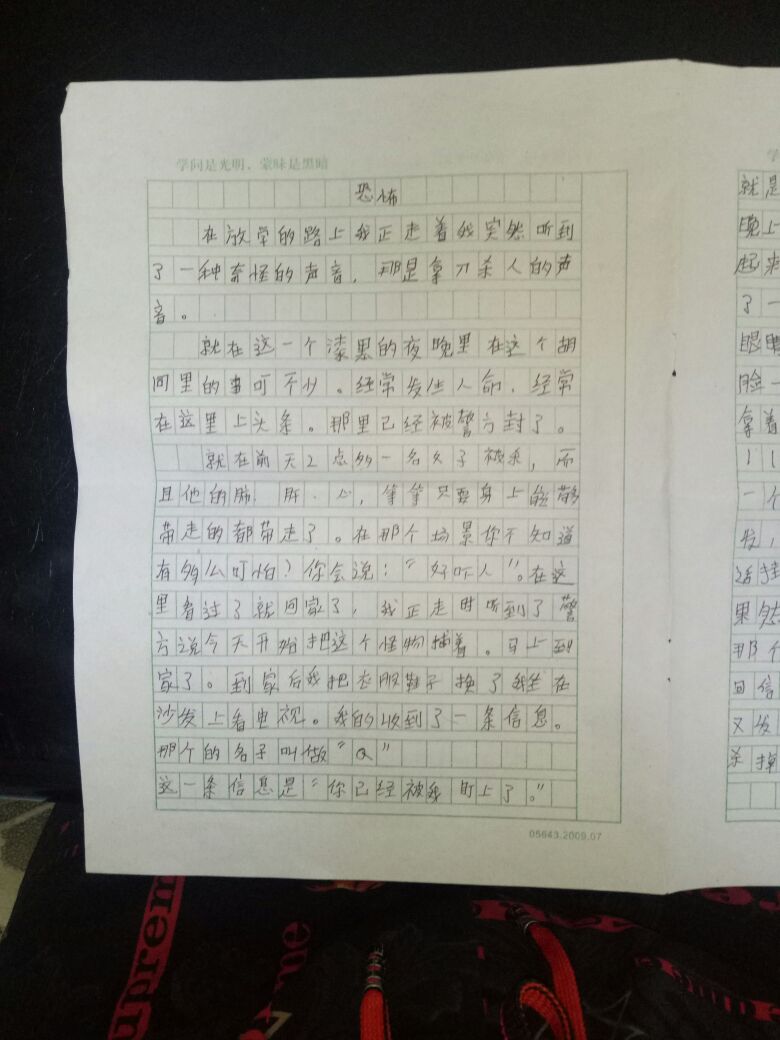 学问是光明，蒙昧是黑暗
恐怖
在放学的路上我正走着我突然听到
了一种奇怪的声音，那是拿刀杀人的声
音。
就在这一个漆黑的夜晚里在这个胡
同里的事可不少。经常发生人命，经常
在这里上头条。那里已经被警方封了。
就在前天2点多一名女子被杀，而
且他的肺 肝·心，等等只要身上能够
带走的都带走了。在那个场景你不知道
有多么可怕？你会说：“好吓人”。在这
里看过了就回家了，我正走时听到了警
方说今天开始把这个怪物捕着。马上到
家了。到家后我把衣服鞋子换了我坐在
沙发上看电视。我的收到了一条信息。
那个的名子叫做“Q”
这一条信息是“你已经被我盯上了。”
05643.2009.07
学
就是
晚上
起来
了一
眼睛
脸一
拿着
一个
发，
话挂
果然
那个
回信
又发
杀掉
Supreme
me